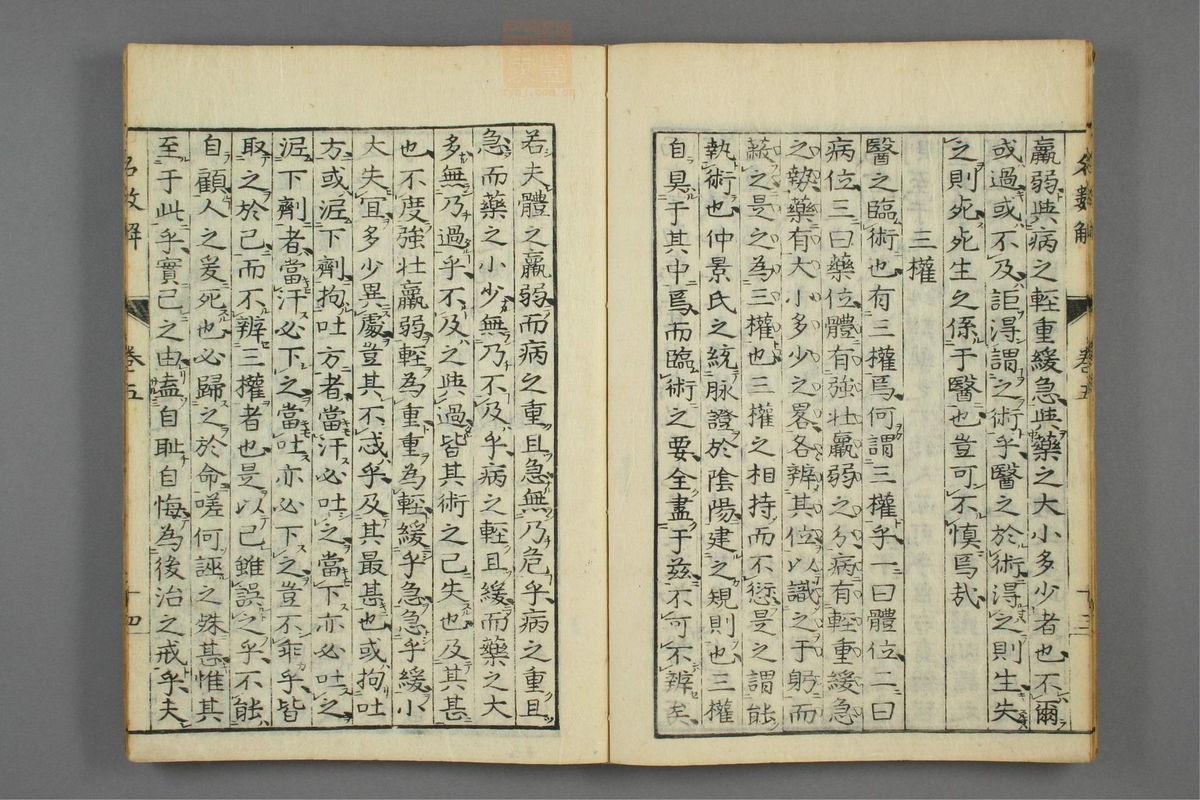 羸弱與病之輕重緩急與藥之大小多少者也不爾
或過或不及詎得謂之術乎醫之於術得之則生失
之則死死生之係于醫也豈可不慎焉哉
三權
醫之臨術也有三權焉何謂三權乎一曰體位二曰
病位三曰藥位體有強壯羸弱之分病有輕重緩急
之勢藥有大小多少之畧各辨其位以識之于躬而
蔽之是之為三權也三權之相持而不愆是之謂能
執術也仲景氏之統脉證於陰陽建之規則也三權
自具于其中焉而臨術之要全盡于茲不可不辨矣
卷五
十三
若夫體之羸弱而病之重且急無乃危乎病之重且
急而藥之小少無乃不及乎病之輕且緩而藥之大
多無乃過乎不及之與過皆其術之己失也及其甚
也不度強壯羸弱輕為重重為輕緩乎急急乎緩小
大失宜多少異處豈其不惑乎及其最甚也或拘吐
方或泥下劑拘吐方者當汗必吐之當下亦必吐之
泥下劑者當汗必下之當吐亦必下之豈不乖乎皆
取之於己而不辨三權者也是以己雖誤之乎不能
自顧人之爰死也必歸之於命嗟何誣之殊甚惟其
至于此乎實己之由盍自耻自悔為後治之戒乎夫
名数解
卷五
十四